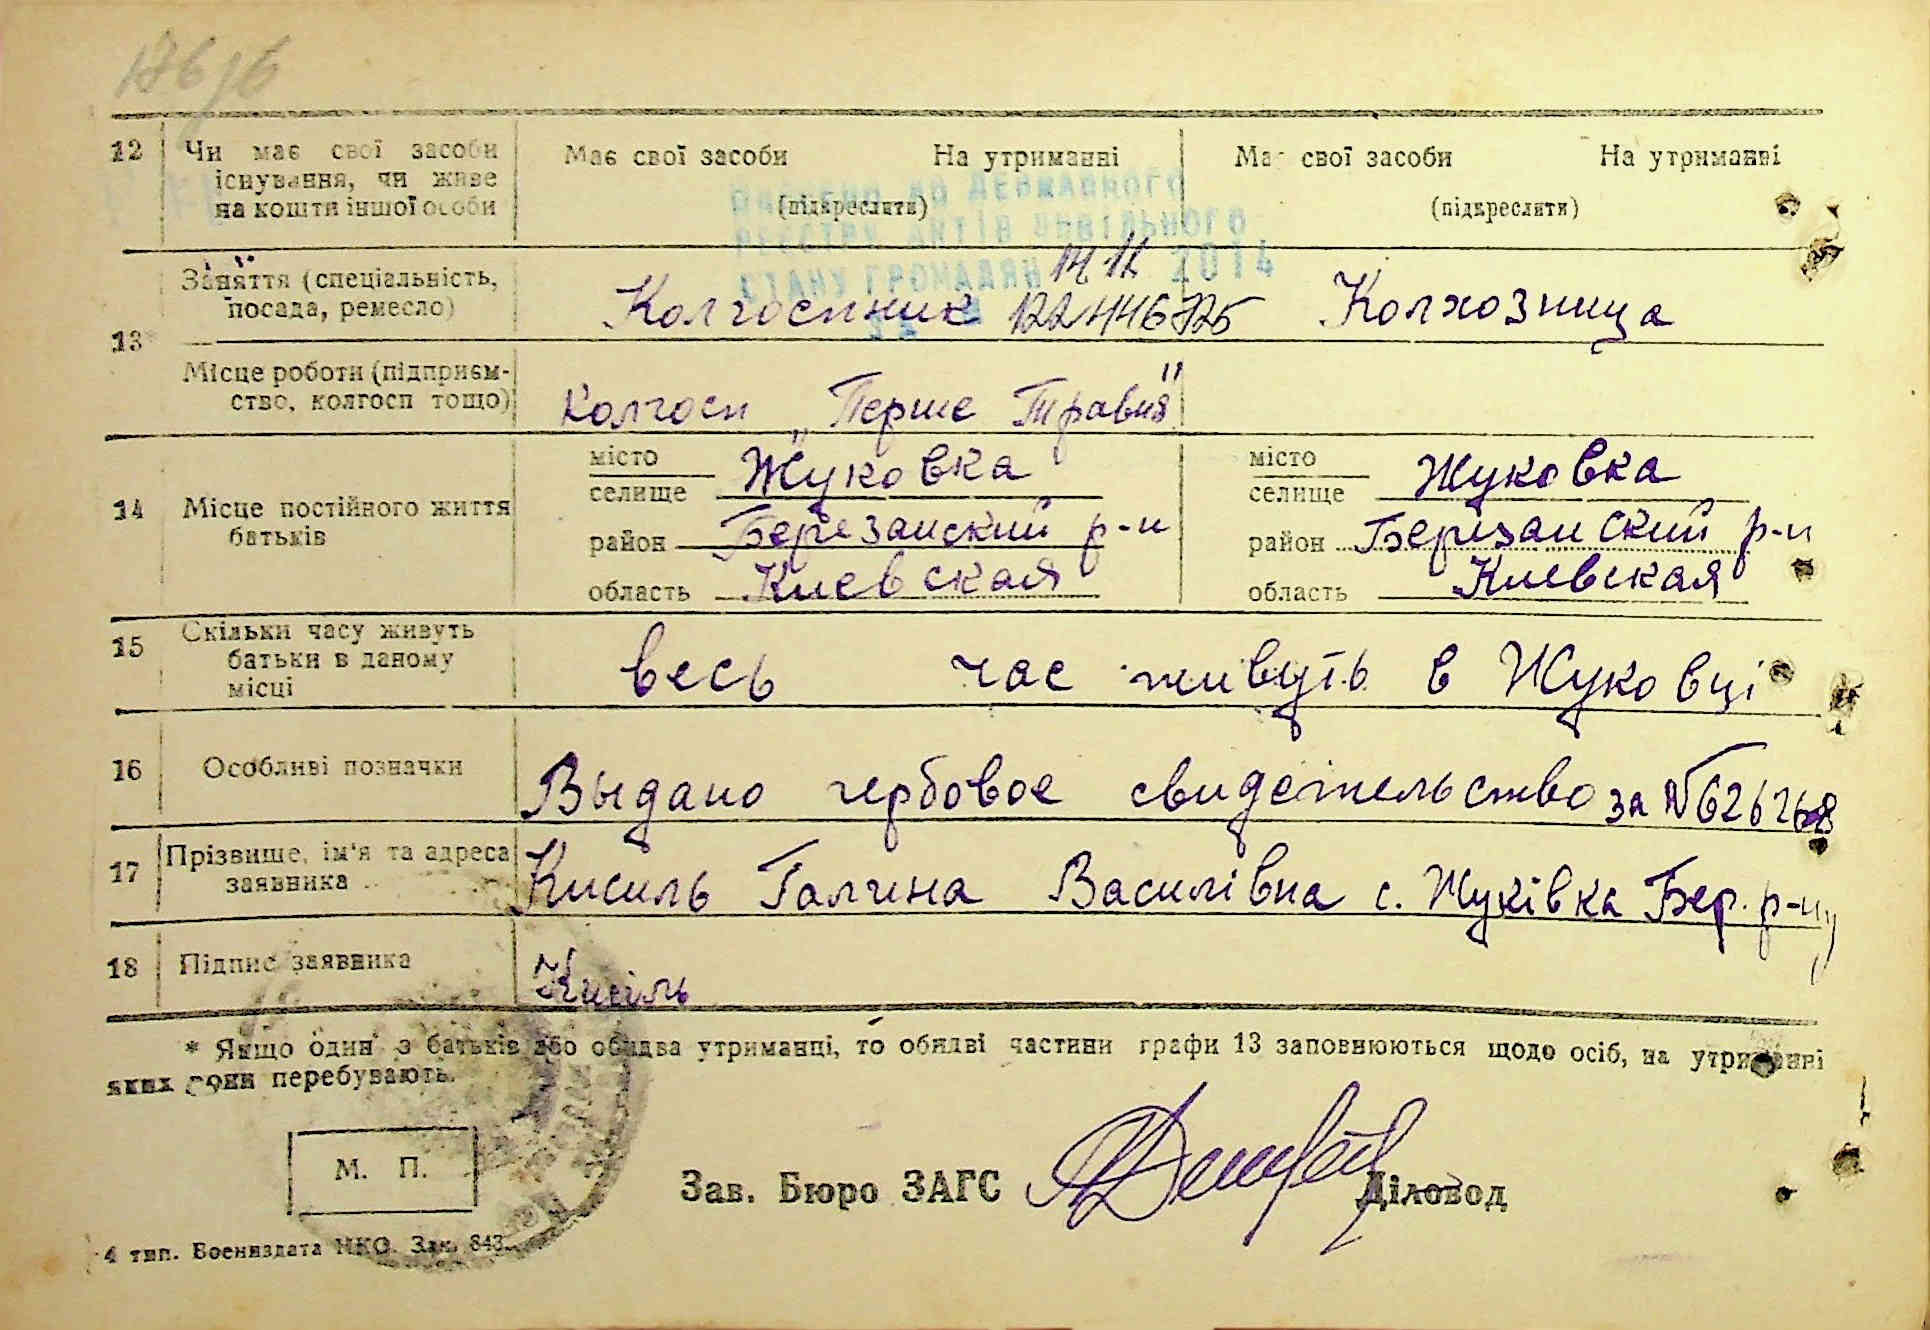 12 Чи має свої засоби
існування, чи живе
на кошти іншої особи
Має свої засоби На утриманні
(підкреслити)
Має свої засоби На утриманні
(підкреслити)
ДЕРЖАВНОГО
РЕЄСТРУ АКТІВ ЦИВІЛЬНОГО
СТАНУ ГРОМАДЯН 14 11 2014
13*
Заняття (спеціальність,
посада, ремесло)
Колгоспник
Колхозница
Місце роботи (підприєм-
ство, колгосп тощо)
Колгосп „Перше Травня"
14 Місце постійного життя
батьків
місто
селище Жуковка
район Березанский р-н
область Киевская
місто
селище Жуковка
район Березанский р-н
область Киевская
15 Скільки часу живуть
батьки в даному
місці
весь час живуть в Жуковці
16 Особливі позначки
Выдано гербовое свидетельство за №
17 Прізвище, ім'я та адреса
заявника
Кисиль Галина Василівна с. Жуківка Бер. р-ну
18 Підпис заявника
Кисіль
* Якщо один з батьків або обидва утриманці, то обидві частини графи 13 заповнюються щодо осіб, на утриманні
яких вони перебувають.
М. П.
Зав. Бюро ЗАГС Діловод
4 тип. Воениздата НКО. Зак. 843.